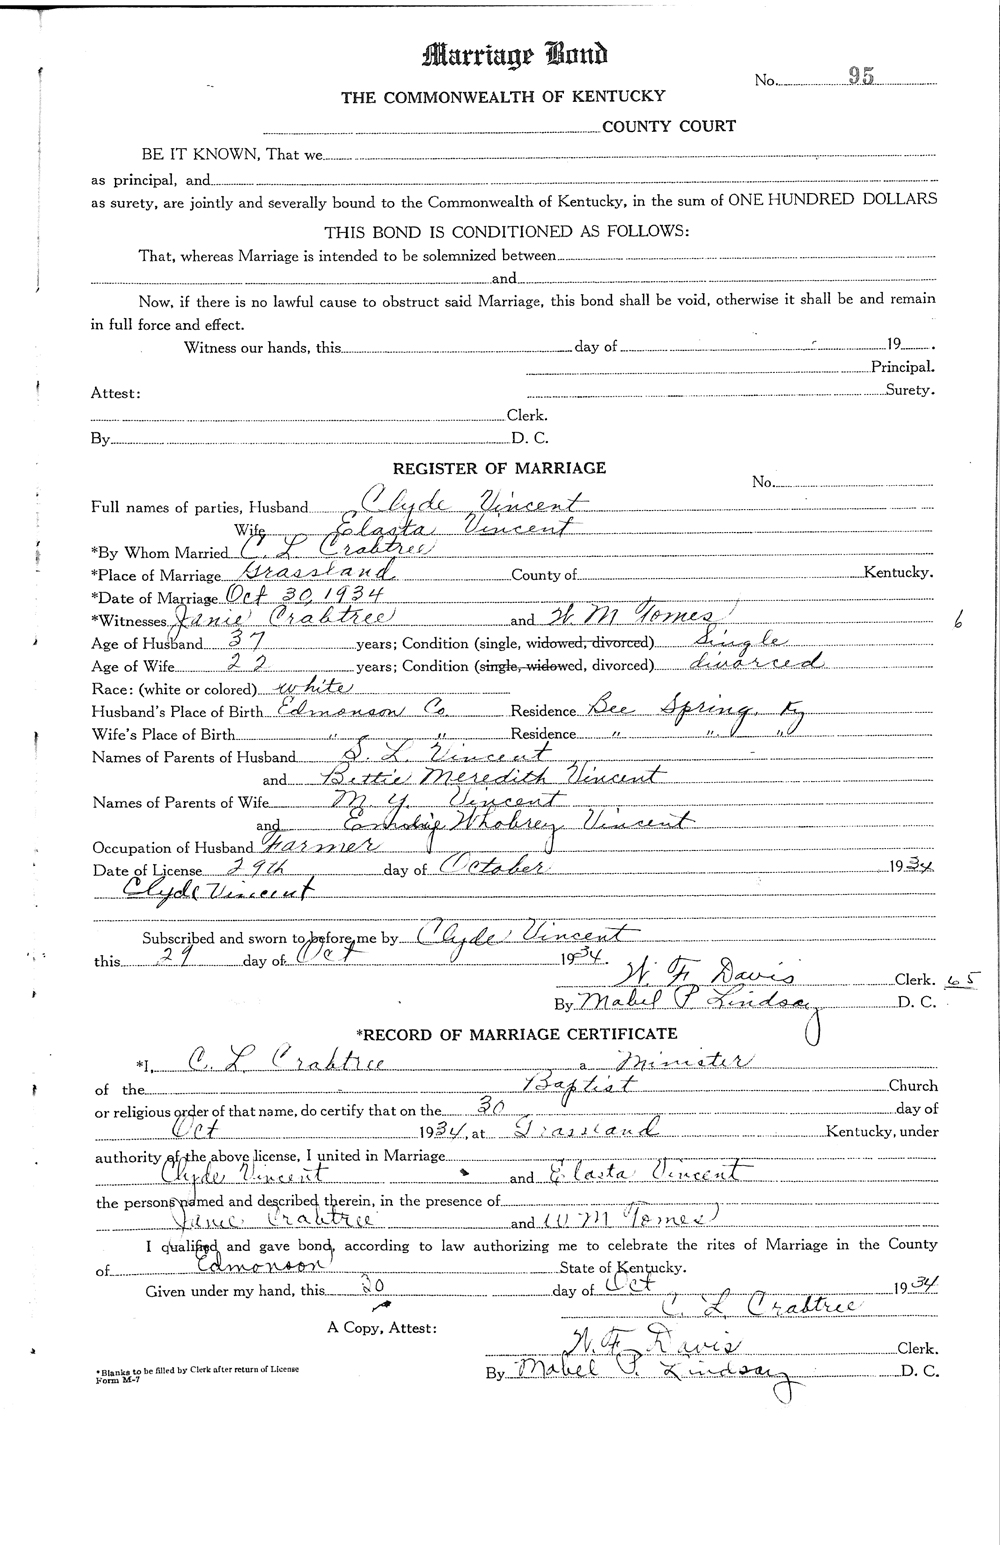 Marriage Bond
No. 95
THE COMMONWEALTH OF KENTUCKY
COUNTY COURT
BE IT KNOWN, That we
as principal, and
as surety, are jointly and severally bound to the Commonwealth of Kentucky, in the sum of ONE HUNDRED DOLLARS
THIS BOND IS CONDITIONED AS FOLLOWS:
That, whereas Marriage is intended to be solemnized between
and
Now, if there is no lawful cause to obstruct said Marriage, this bond shall be void, otherwise it shall be and remain
in full force and effect.
Witness our hands, this day of 19 .
Principal.
Attest: Surety.
Clerk.
By D. C.
REGISTER OF MARRIAGE
No.
Full names of parties, Husband Clyde Vincent
Wife Elasta Vincent
*By Whom Married C. L. Crabtree
*Place of Marriage Grassland County of Kentucky.
*Date of Marriage Oct 30, 1934
*Witnesses Janie Crabtree and W M Tomes 6
Age of Husband 37 years; Condition (single, widowed, divorced) Single
Age of Wife 22 years; Condition (single, widowed, divorced) divorced
Race: (white or colored) white
Husband's Place of Birth Edmonson Co. Residence Bee Spring, Ky
Wife's Place of Birth " " Residence " " "
Names of Parents of Husband S. L. Vincent
and Bettie Meredith Vincent
Names of Parents of Wife M. Y. Vincent
and Whobrey Vincent
Occupation of Husband Farmer
Date of License 29th day of October 1934
Clyde Vincent
Subscribed and sworn to before me by Clyde Vincent
this 29 day of Oct 1934.
W. F. Davis Clerk. 65
By Mabel P. Lindsay D. C.
*RECORD OF MARRIAGE CERTIFICATE
*I, C. L. Crabtree a Minister
of the Baptist Church
or religious order of that name, do certify that on the 30 day of
Oct 1934, at Grassland Kentucky, under
authority of the above license, I united in Marriage
Clyde Vincent and Elasta Vincent
the persons named and described therein, in the presence of
Janie Crabtree and W M Tomes
I qualified and gave bond, according to law authorizing me to celebrate the rites of Marriage in the County
of Edmonson State of Kentucky.
Given under my hand, this 30 day of Oct 1934
C. L. Crabtree
A Copy, Attest:
W. F. Davis Clerk.
By Mabel P. Lindsay D. C.
*Blanks to be filled by Clerk after return of License
Form M-7